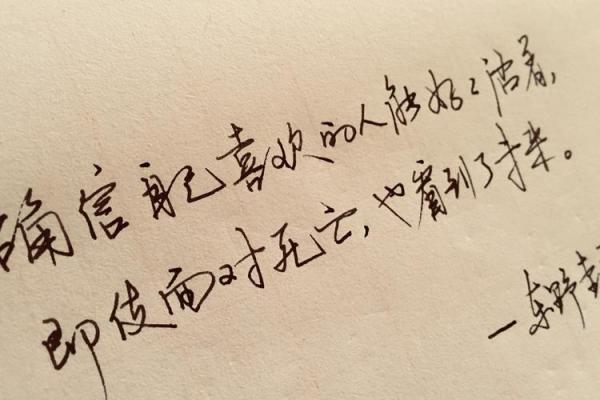 确信自己喜欢的人能好好活着，
即使面对死亡，也看到了未来。
—东野圭